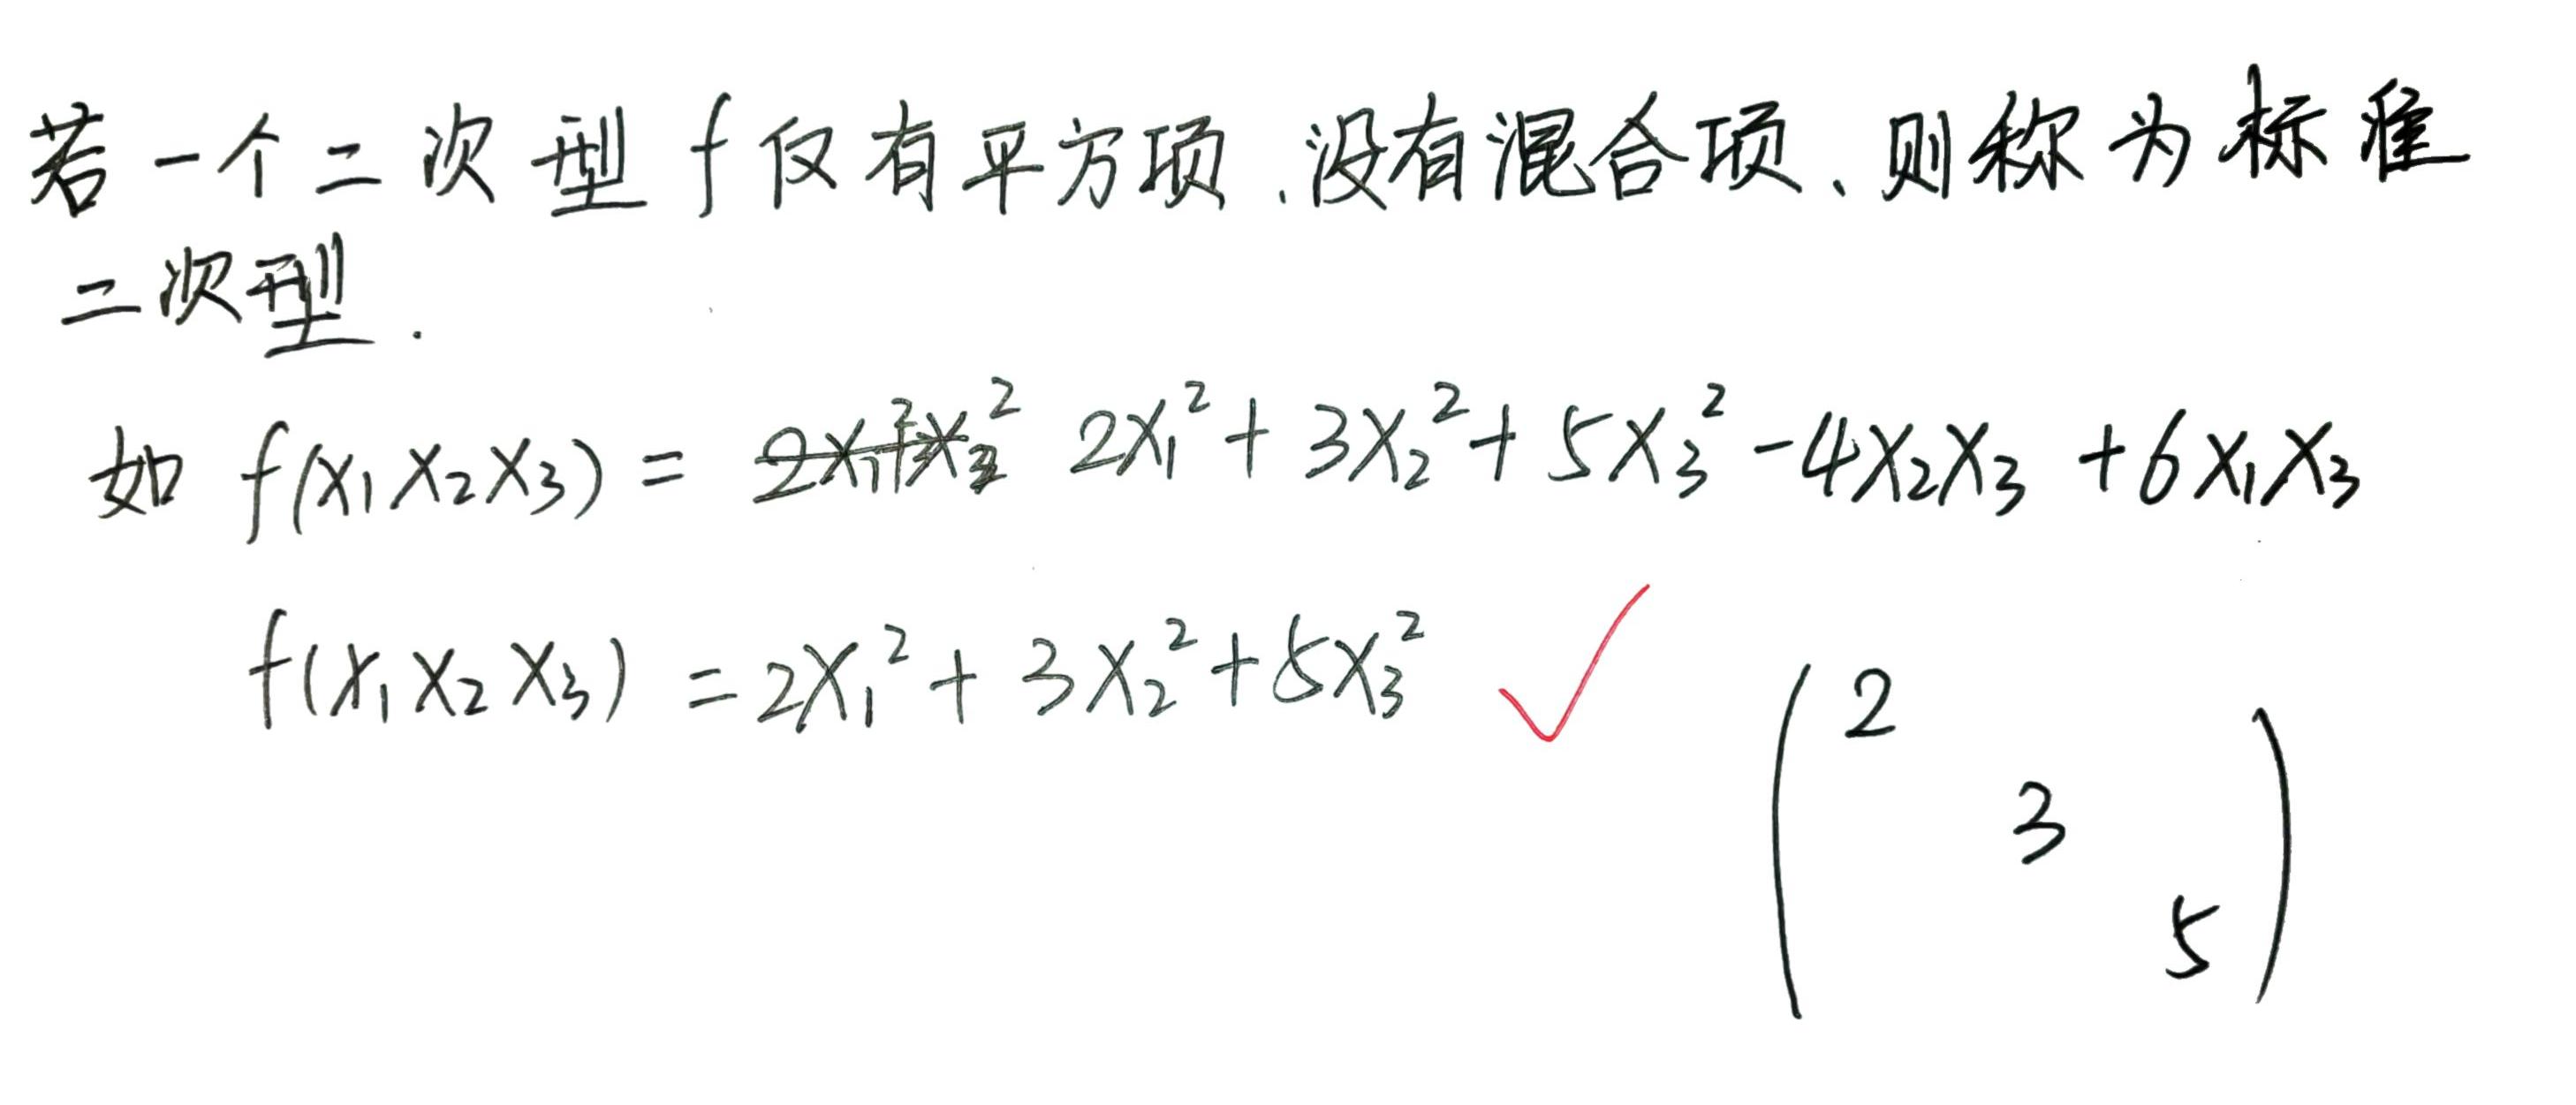 若一个二次型 f 仅有平方项、没有混合项、则称为标准
二次型.
如 f(x₁x₂x₃) = 2x₁² + 3x₂² + 5x₃² - 4x₂x₃ + 6x₁x₃
f(x₁x₂x₃) = 2x₁² + 3x₂² + 5x₃² ✓
(2
3
5)